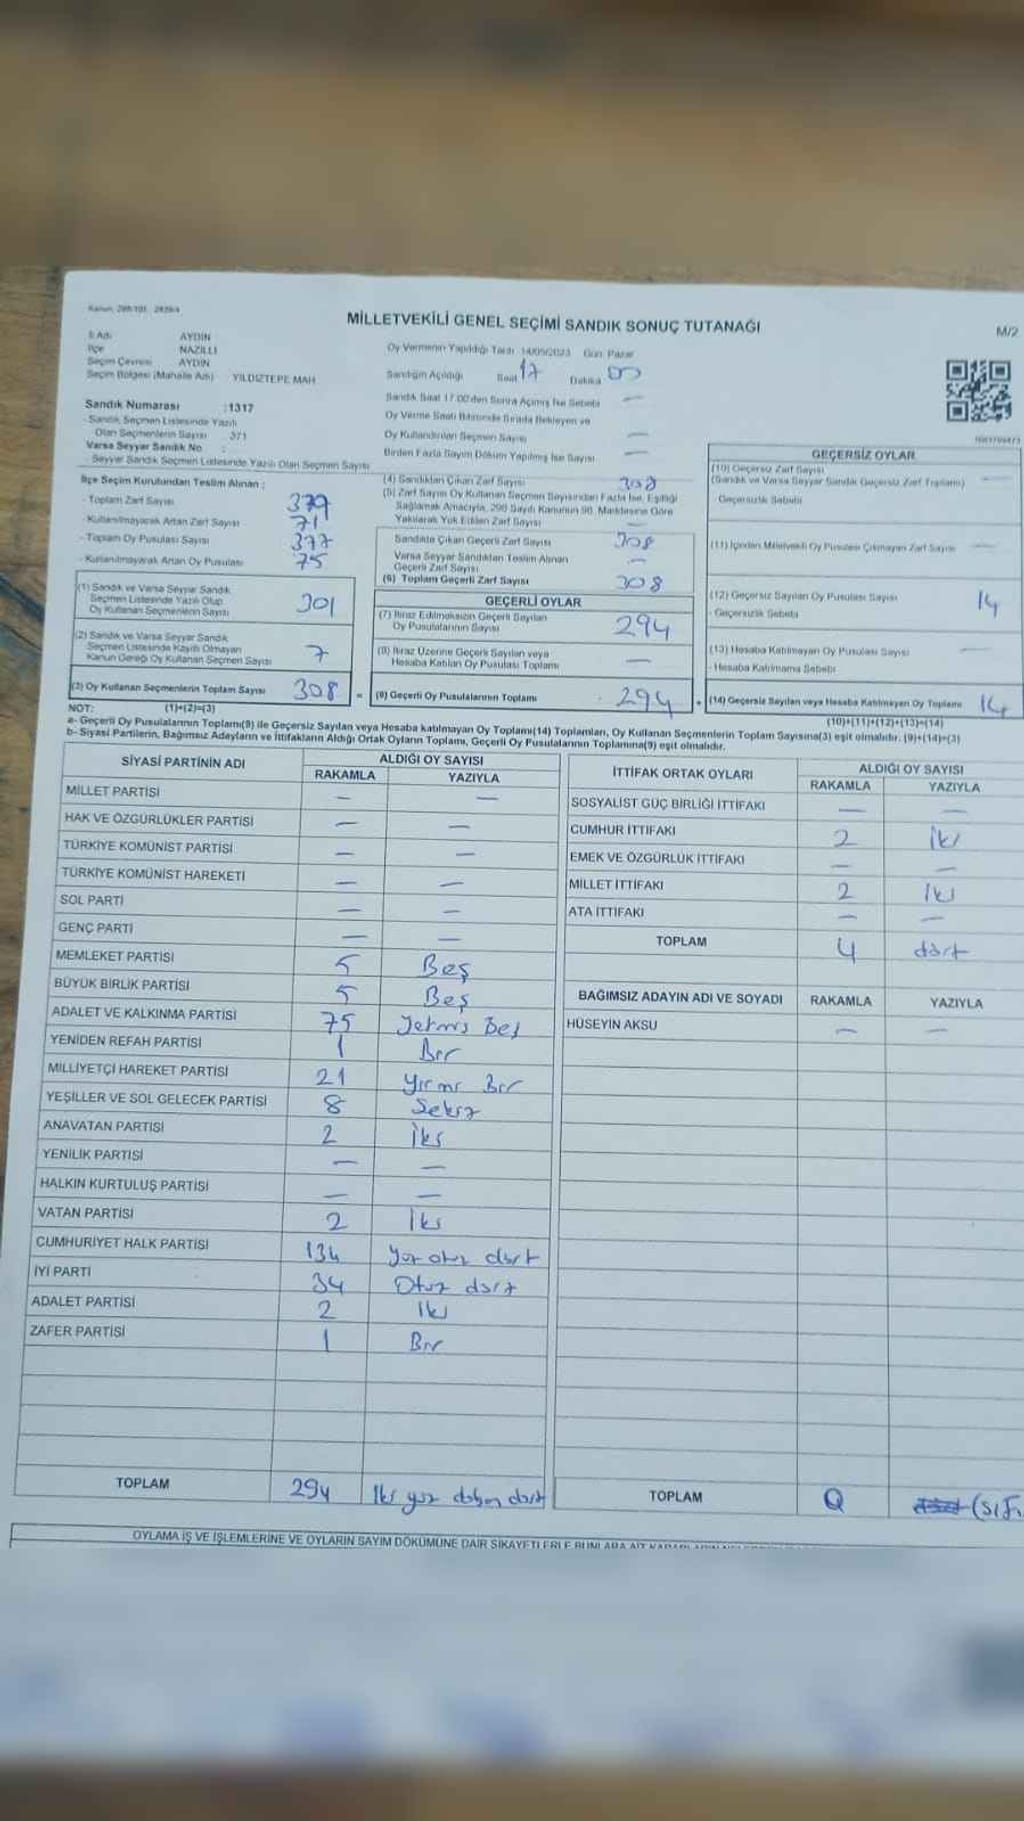 MİLLETVEKİLİ GENEL SEÇİMİ SANDIK SONUÇ TUTANAĞI
M/2
İl Adı AYDIN
İlçe NAZİLLİ
Seçim Çevresi AYDIN
Seçim Bölgesi (Mahalle Adı) YILDIZTEPE MAH.
Sandık Numarası :1317
- Sandık Seçmen Listesinde Yazılı
Olan Seçmenlerin Sayısı 371
Varsa Seyyar Sandık No :
- Seyyar Sandık Seçmen Listesinde Yazılı Olan Seçmen Sayısı
Oy Vermenin Yapıldığı Tarih 14/05/2023 Gün Pazar
Sandığın Açıldığı Saat 17 Dakika 00
Sandık Saat 17.00'den Sonra Açılmış İse Sebebi —
Oy Verme Saati Bitiminde Sırada Bekleyen ve
Oy Kullandırılan Seçmen Sayısı —
Birden Fazla Sayım Döküm Yapılmış İse Sayısı —
İlçe Seçim Kurulundan Teslim Alınan :
- Toplam Zarf Sayısı
- Kullanılmayarak Artan Zarf Sayısı 71
- Toplam Oy Pusulası Sayısı 377
- Kullanılmayarak Artan Oy Pusulası 75
(1) Sandık ve Varsa Seyyar Sandık
Seçmen Listesinde Yazılı Olup
Oy Kullanan Seçmenlerin Sayısı 301
(2) Sandık ve Varsa Seyyar Sandık
Seçmen Listesinde Kayıtlı Olmayan
Kanun Gereği Oy Kullanan Seçmen Sayısı 7
(3) Oy Kullanan Seçmenlerin Toplam Sayısı 308 =
(4) Sandıktan Çıkan Zarf Sayısı 308
(5) Zarf Sayısı Oy Kullanan Seçmen Sayısından Fazla İse, Eşitliği
Sağlamak Amacıyla, 298 Sayılı Kanunun 98. Maddesine Göre
Yakılarak Yok Edilen Zarf Sayısı —
Sandıkta Çıkan Geçerli Zarf Sayısı 308
Varsa Seyyar Sandıktan Teslim Alınan
Geçerli Zarf Sayısı —
(6) Toplam Geçerli Zarf Sayısı 308
GEÇERLİ OYLAR
(7) İtiraz Edilmeksizin Geçerli Sayılan
Oy Pusulalarının Sayısı 294
(8) İtiraz Üzerine Geçerli Sayılan veya
Hesaba Katılan Oy Pusulası Toplamı —
(9) Geçerli Oy Pusulalarının Toplamı 294 +
GEÇERSİZ OYLAR
(10) Geçersiz Zarf Sayısı
(Sandık ve Varsa Seyyar Sandık Geçersiz Zarf Toplamı) —
- Geçersizlik Sebebi
(11) İçinden Milletvekili Oy Pusulası Çıkmayan Zarf Sayısı —
(12) Geçersiz Sayılan Oy Pusulası Sayısı 14
- Geçersizlik Sebebi
(13) Hesaba Katılmayan Oy Pusulası Sayısı —
- Hesaba Katılmama Sebebi
(14) Geçersiz Sayılan veya Hesaba Katılmayan Oy Toplamı 14
NOT: (1)+(2)=(3) (10)+(11)+(12)+(13)=(14)
a- Geçerli Oy Pusulalarının Toplamı(9) ile Geçersiz Sayılan veya Hesaba katılmayan Oy Toplamı(14) Toplamları, Oy Kullanan Seçmenlerin Toplam Sayısına(3) eşit olmalıdır. (9)+(14)=(3)
b- Siyasi Partilerin, Bağımsız Adayların ve İttifakların Aldığı Ortak Oyların Toplamı, Geçerli Oy Pusulalarının Toplamına(9) eşit olmalıdır.
SİYASİ PARTİNİN ADI ALDIĞI OY SAYISI
RAKAMLA YAZIYLA
MİLLET PARTİSİ — —
HAK VE ÖZGÜRLÜKLER PARTİSİ — —
TÜRKİYE KOMÜNİST PARTİSİ — —
TÜRKİYE KOMÜNİST HAREKETİ — —
SOL PARTİ — —
GENÇ PARTİ — —
MEMLEKET PARTİSİ 5 Beş
BÜYÜK BİRLİK PARTİSİ 5 Beş
ADALET VE KALKINMA PARTİSİ 75 Yetmiş Beş
YENİDEN REFAH PARTİSİ 1 Bir
MİLLİYETÇİ HAREKET PARTİSİ 21 Yirmi Bir
YEŞİLLER VE SOL GELECEK PARTİSİ 8 Sekiz
ANAVATAN PARTİSİ 2 İki
YENİLİK PARTİSİ — —
HALKIN KURTULUŞ PARTİSİ — —
VATAN PARTİSİ 2 İki
CUMHURİYET HALK PARTİSİ 134 Yüz otuz dört
İYİ PARTİ 34 Otuz dört
ADALET PARTİSİ 2 İki
ZAFER PARTİSİ 1 Bir
TOPLAM 294 İki yüz doksan dört
İTTİFAK ORTAK OYLARI ALDIĞI OY SAYISI
RAKAMLA YAZIYLA
SOSYALİST GÜÇ BİRLİĞİ İTTİFAKI — —
CUMHUR İTTİFAKI 2 İki
EMEK VE ÖZGÜRLÜK İTTİFAKI — —
MİLLET İTTİFAKI 2 İki
ATA İTTİFAKI — —
TOPLAM 4 dört
BAĞIMSIZ ADAYIN ADI VE SOYADI RAKAMLA YAZIYLA
HÜSEYİN AKSU — —
TOPLAM 0 (sıfı
OYLAMA İŞ VE İŞLEMLERİNE VE OYLARIN SAYIM DÖKÜMÜNE DAİR ŞİKAYETLERLE BUNLARA AİT